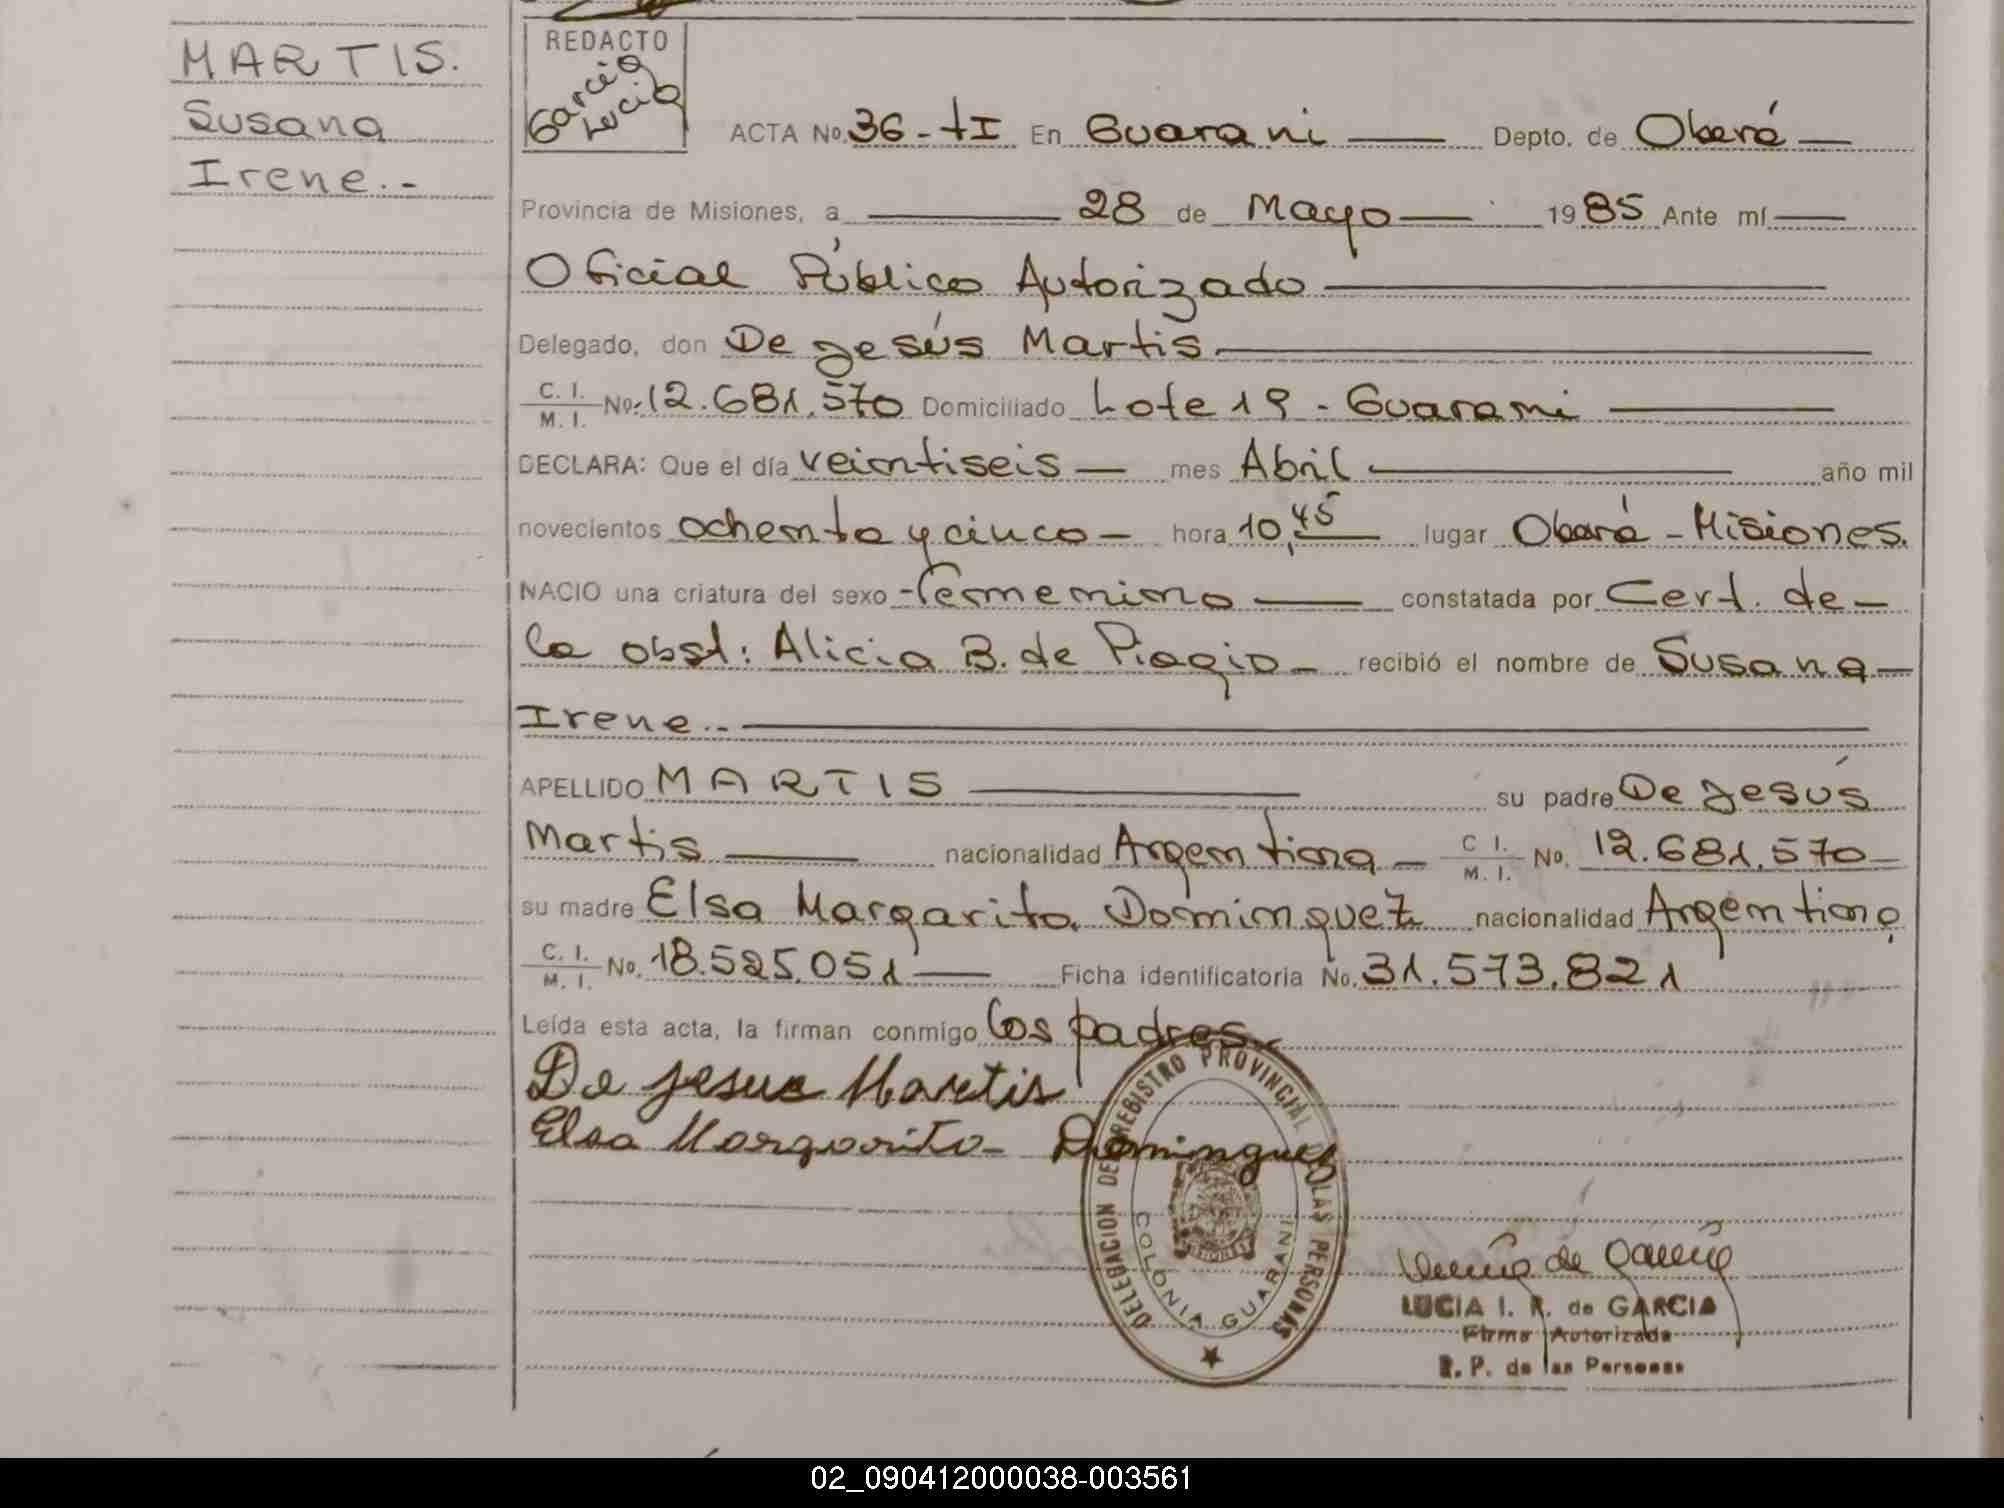 MARTIS.
Susana
Irene.-
REDACTO
Garcia
Lucia
ACTA No. 36 - tI En Guarani Depto. de Oberá
Provincia de Misiones, a 28 de Mayo 1985 Ante mí
Oficial Público Autorizado
Delegado, don De Jesús Martis
C. I. / M. I. No. 12.681.570 Domiciliado Lote 19 - Guarani
DECLARA: Que el día veintiseis mes Abril año mil
novecientos ochenta y cinco hora 10,45 lugar Oberá - Misiones.
NACIO una criatura del sexo femenino constatada por Cert. de
la obst: Alicia B. de Piagio recibió el nombre de Susana
Irene.-
APELLIDO MARTIS su padre De Jesús
Martis nacionalidad Argentina C I. / M. I. No. 12.681.570
su madre Elsa Margarita Dominguez nacionalidad Argentina
C. I. / M. I. No. 18.525.051 Ficha identificatoria No. 31.573.821
Leída esta acta, la firman conmigo los padres.
De Jesus Martis
Elsa Margarita Dominguez
DELEGACION DE REGISTRO PROVINCIAL DE LAS PERSONAS
COLONIA GUARANI
Lucia de Garcia
LUCIA I. R. de GARCIA
Firma Autorizada
R. P. de las Personas
02_090412000038-003561